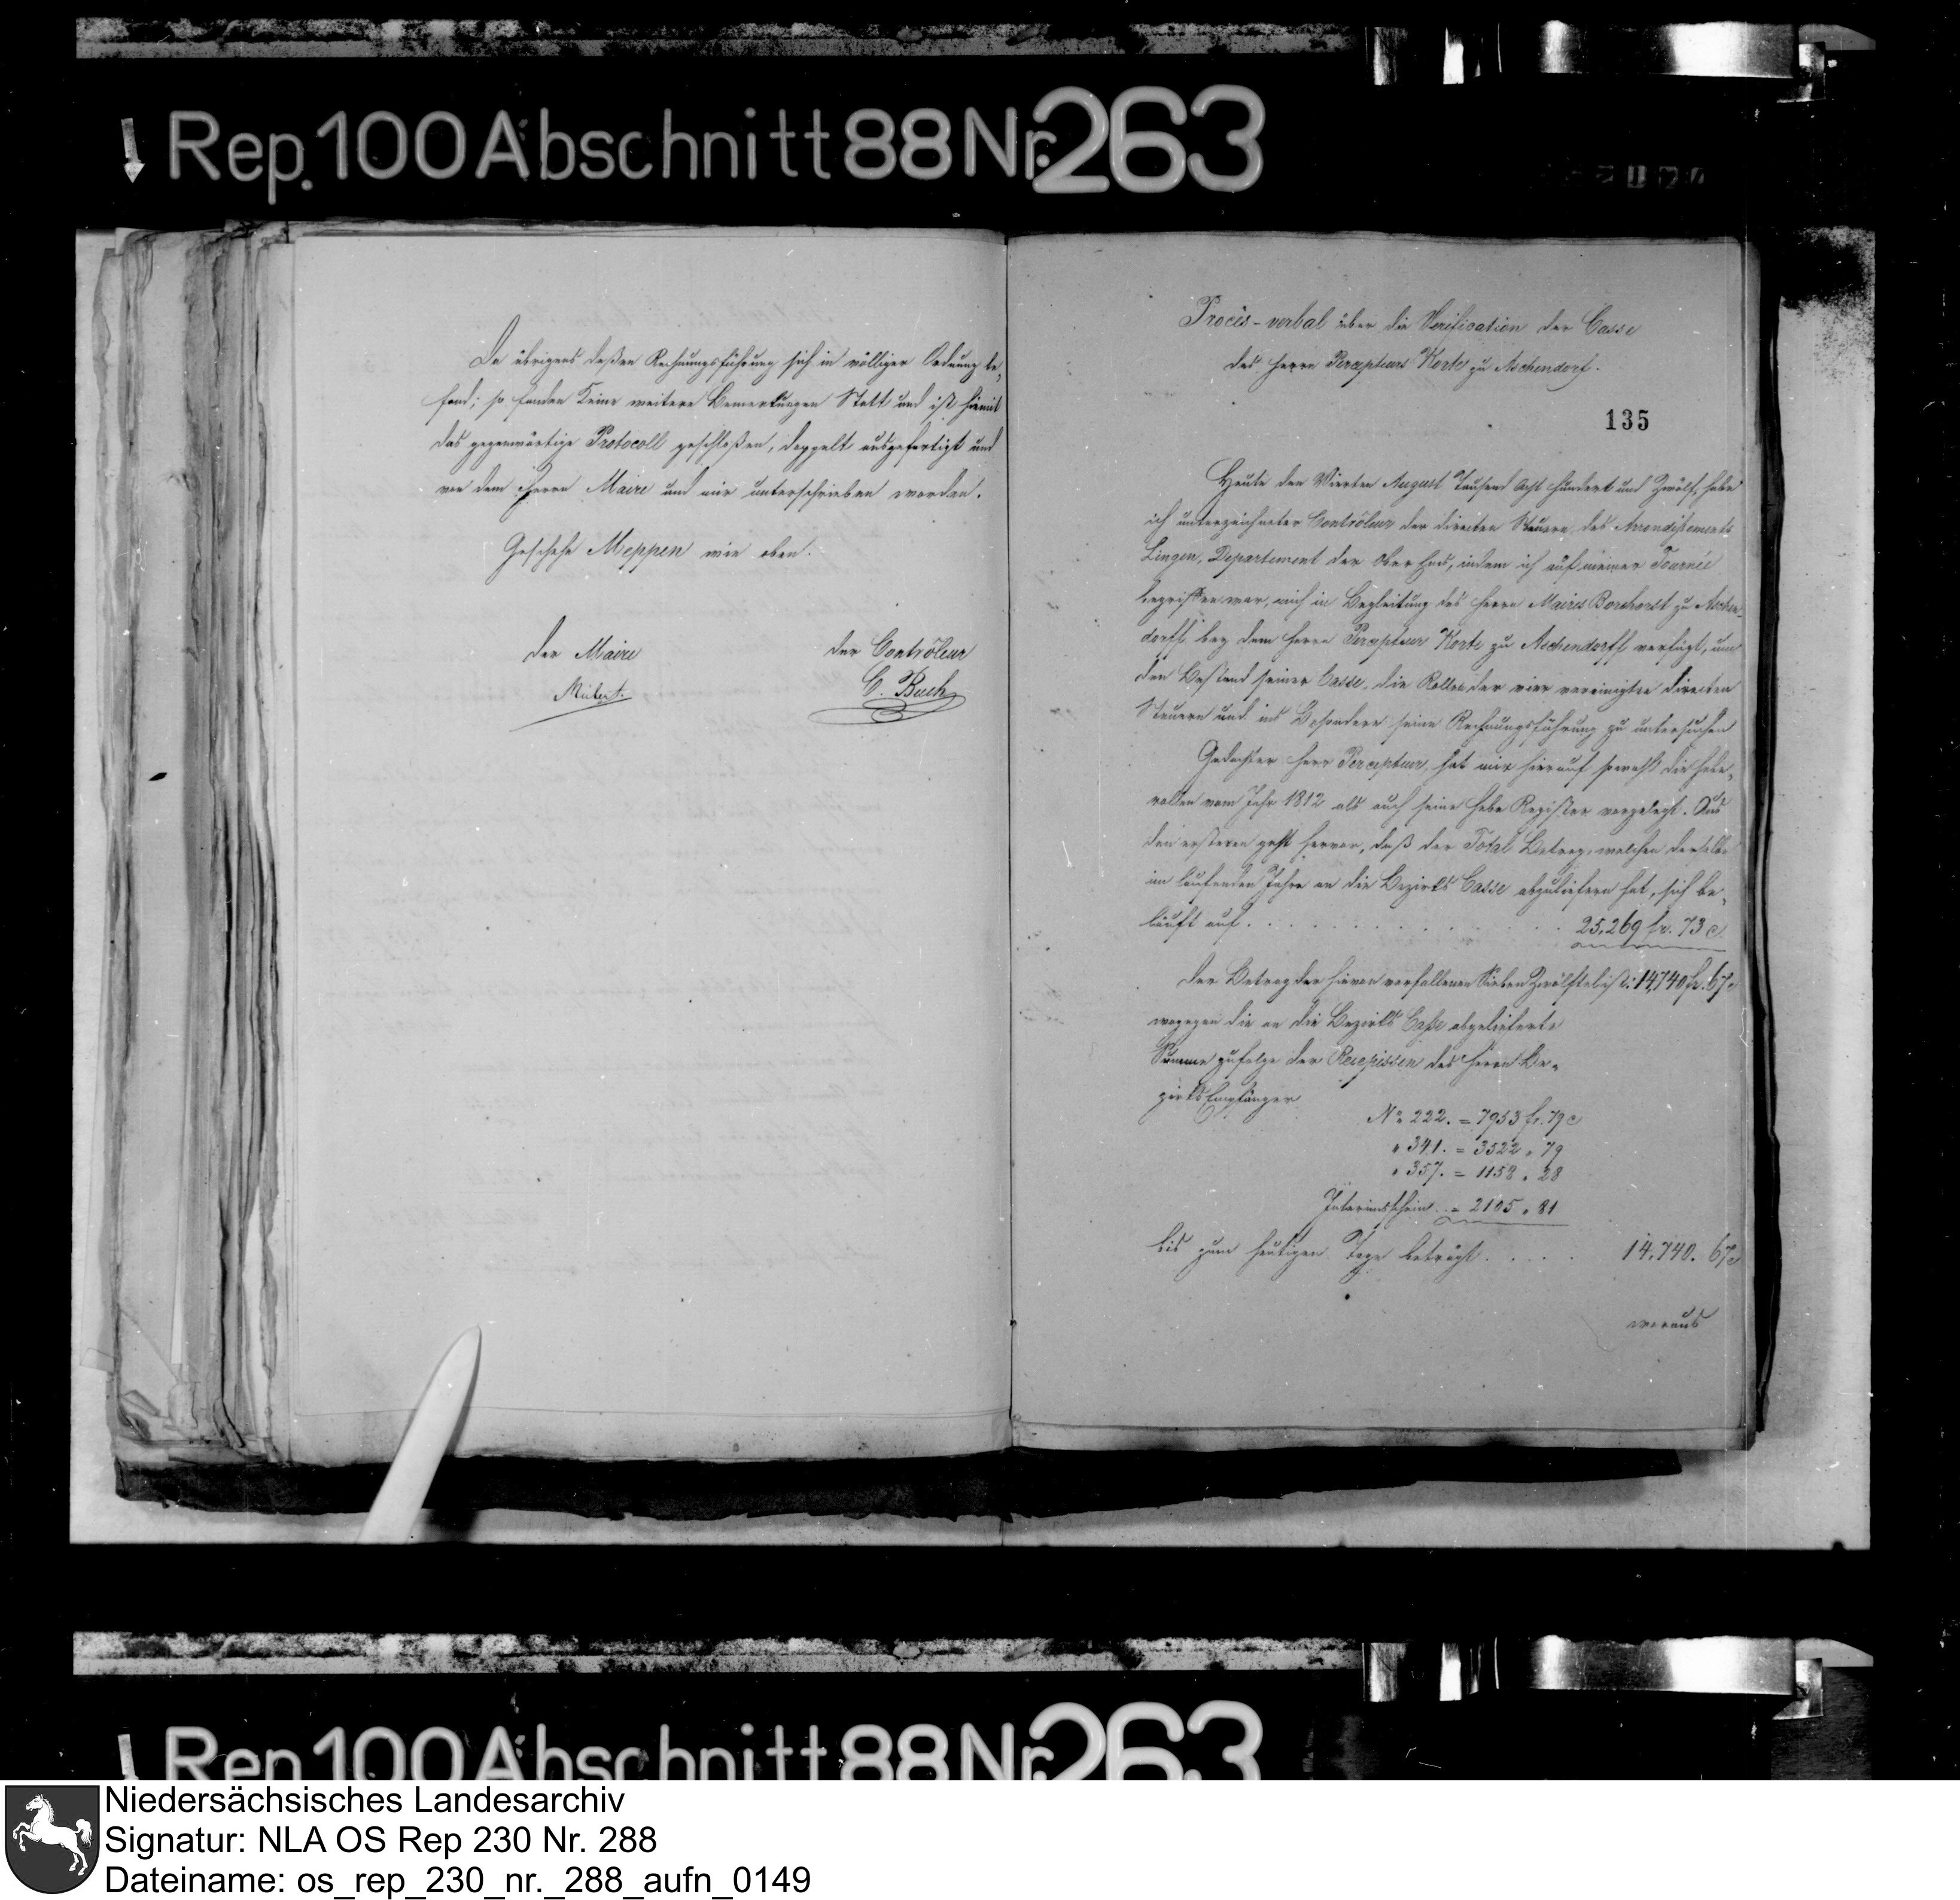 Rep. 100 Abschnitt 88 Nr. 263
Da übrigens deßen Rechnungsführung sich in völliger Ordnung be¬
fand; so fanden keine weitere Bemerkungen Statt und ist hiemit
das gegenwärtige Protocoll geschloßen, doppelt ausgefertigt und
von dem Herrn Maire und mir unterschrieben worden.
Geschehe Meppen wie oben.
Der Maire
Der Contrôleur
C. Buch
Procès-verbal über die Verification der Casse
des Herrn Percepteurs Korte zu Aschendorf.
135
Heute den Vierten August Tausend Acht hundert und Zwölf, habe
ich unterzeichneter Contrôleur der directen Steuern des Arrondissements
Lingen, Departement der Ober Ems, indem ich auf meiner Tournée
begriffen war, mich in Begleitung des Herrn Maires Borchorst zu Aschen¬
dorff bey dem Herrn Percepteur Korte zu Aschendorff verfügt, um
den Bestand seiner Casse, die Rollen der vier vereinigten directen
Steuern und ins Besondere seine Rechnungsführung zu untersuchen
Gedachter Herr Percepteur, hat mir hierauf sowohl die Hebe¬
rollen vom Jahr 1812 als auch seine Hebe Register vorgelegt. Aus
den ersteren geht hervor, daß der Total Betrag, welchen derselbe
im laufenden Jahre an die Bezirks Casse abzuliefern hat, sich be¬
läuft auf . . . . . . . . . . 25,269 fr. 73 c
Der Betrag der hievon verfallenen Sieben Zwölftel ist: 14,740 fr. 67 c
wogegen die an die Bezirks Casse abgelieferte
Summe zufolge der Recepissen des Herrn Be¬
zirks Empfänger
No 222. = 7953 fr. 79 c
" 341. = 3522 " 79
" 357. = 1158 " 28
Interimsschein = 2105 " 81
bis zum heutigen Tage beträgt . . . . 14.740. 67 c
woraus
Rep. 100 Abschnitt 88 Nr. 263
Niedersächsisches Landesarchiv
Signatur: NLA OS Rep 230 Nr. 288
Dateiname: os_rep_230_nr._288_aufn_0149